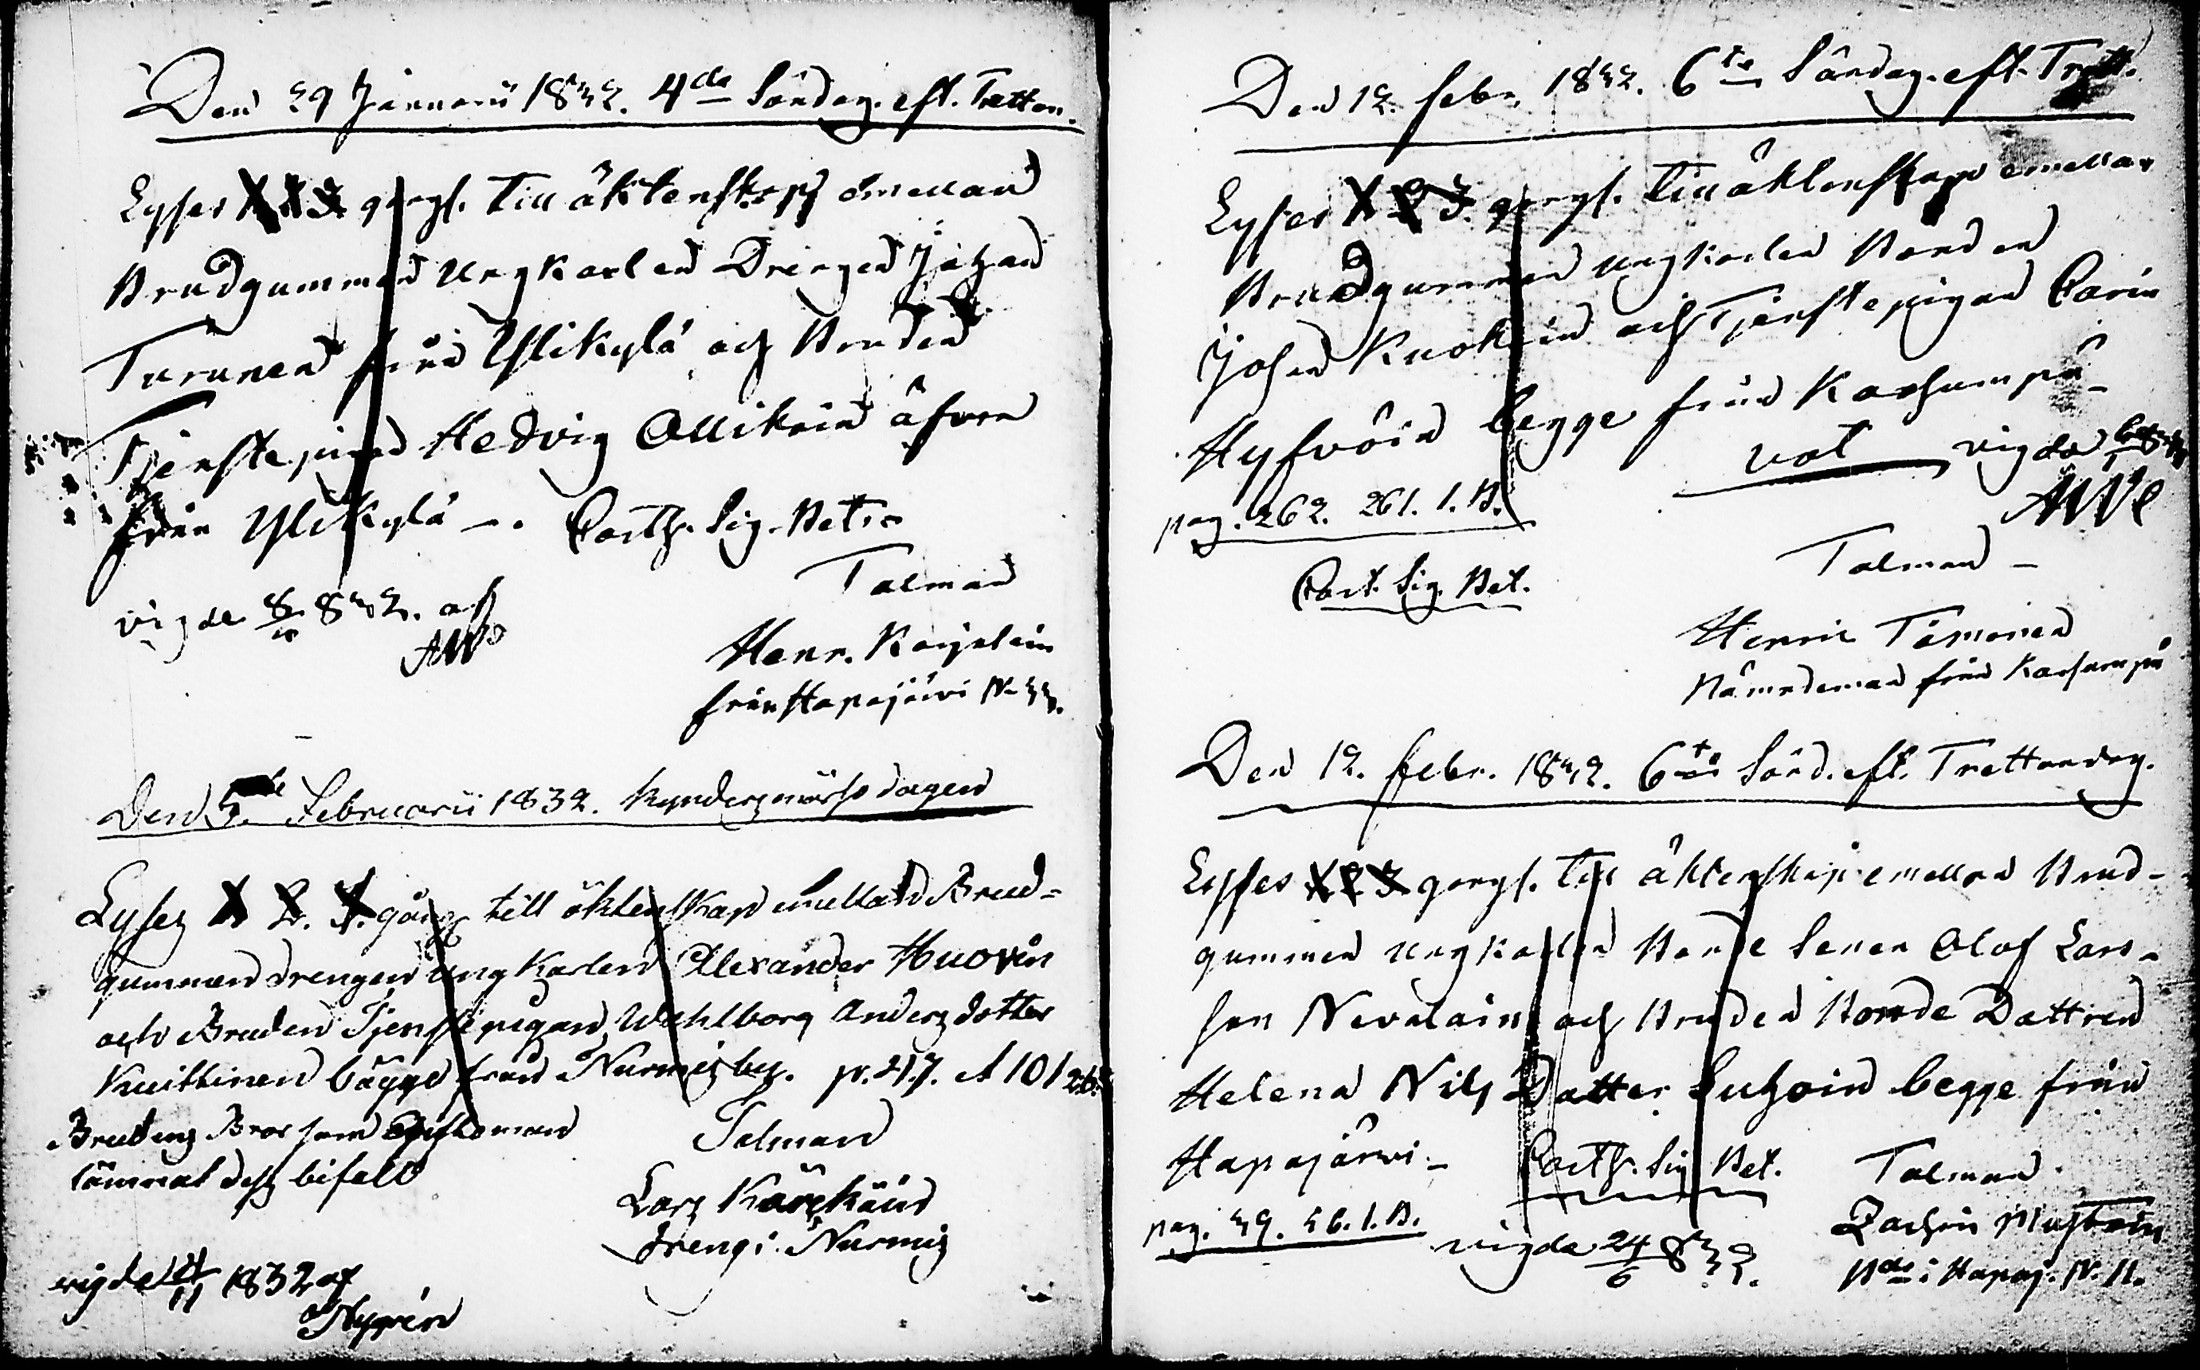 Den 29 Januarii 1832. 4de Söndag. eft. Tretton.
Lyses 1 2 3 gongs. Till äktenskap emellan
Brudgummen Ungkarlen Drengen Johan
Turunen från Ylikylä och Bruden
Tjenstepigan Hedvig Ollikain äfven
från Ylikylä –. Certh. Sig. Bet.
vigde 8/10 832. af
Talman
Henr. Karjalain
från Hapajärvi N. 33.
Den 5te Februarii 1832. Kyndersmässo dagen
Lyses 1 2. 3. gång till äktenskap emellan Brud-
gummen drengen ungkarlen Alexander Huovin
och Bruden Tjenstepigan Wahlborg Anders dotter
Kuittinen bägge från Nurmis by. p. 217. et 101
Brudens Bror som
lämnat dess bifall
Talman
Lars Kärckäin
dreng i Nurmis
vigde 1832 af
Nygrén
Den 12. febr. 1832. 6te Söndag. eft. Trett.
Lyses 1 2 3. gongs. Till äktenskap emellan
Brudgummen ungkarlen Bonden
Johan Kuok in och Tjenstepigan Carin
Hyfvöin begge från Karhunpä-
vat vigda
pag. 262. 261. 1. B.
Cert. Sig. Bet.
Talman –
Henric Timonen
Nämndeman från Karhunpä
Den 12. febr. 1832. 6te Sönd. eft. Trettondag.
Lyses 1 2 3 gongs. Till äktenskap emellan Brud-
gummen ungkarlen Bonde Sonen Olof Lars-
son Nevalain och Bruden Bonde Dottren
Helena Nils Dotter Suhoin begge från
Hapajärvi – Certh. Sig. Bet. Talman
pag. 39. 36. 1. B. vigda 24/6 832.
Zachris Mustoin
Bde i Hapaj. N. 11.